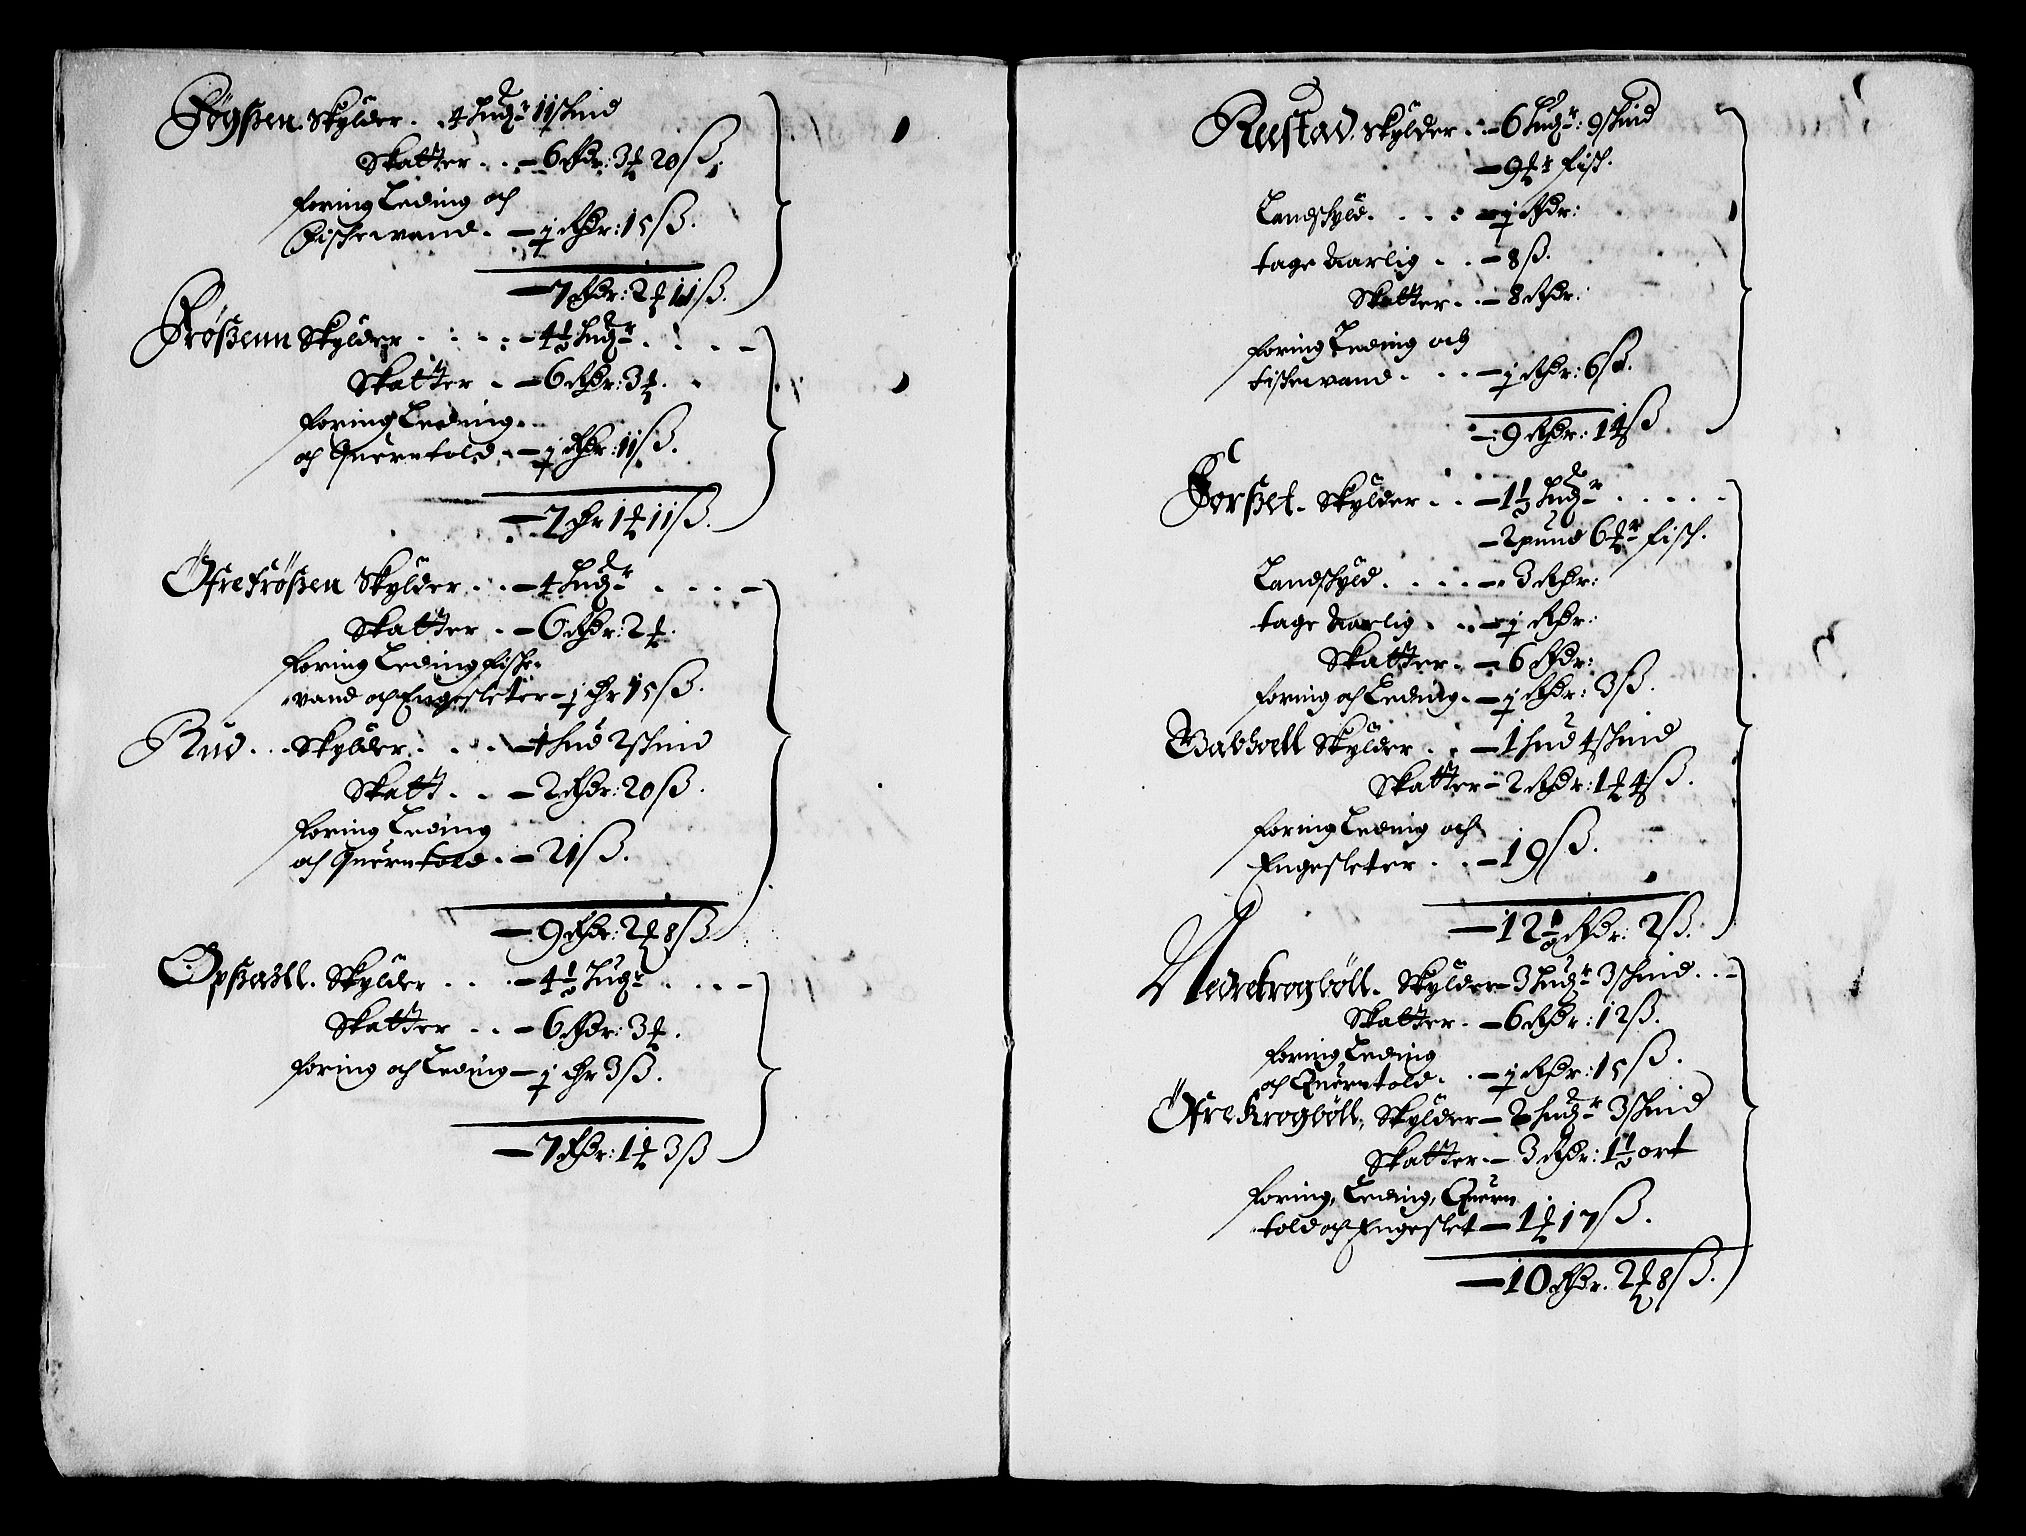 Føgßen. Skylder . . 4 hudr 11 skind
Skatter . . 6 Rdr: 3 ort 20 ß.
foring Leding och
fiskevand. 1 Rdr: 15 ß.
7 Rdr: 2 ort 11 ß.
Frößenn Skylder . . . . 4½ hudr . . .
Skatter . 6 Rdr: 3 ort.
foring Leding
och Querntold . 1 Rdr: 11 ß.
7 dr 1 ort 11 ß.
Öfre Frößen Skylder . . 4 hudr . . .
Skatter . 6 Rdr: 2 ort.
foring Leding fiske-
vand och Engesleter 1 dr 15 ß.
Rud . . . Skylder . . . 1 hud 2 skind
Skatt . . 2 Rdr: 20 ß.
foring Leding
och Querntold . 21 ß.
9 Rdr: 2 ort 8 ß
Opßadll. Skylder . . . 4½ hudr . . .
Skatter . . 6 Rdr: 3 ort.
foring och Leding 1 dr 3 ß.
7 Rdr: 1 ort 3 ß
Rustad. Skylder . . 6 hudr: 9 skind
fisk.
Landskyld. . . . 1 Rdr:
tage aarlig . . 8 ß.
Skatter. . 8 Rdr:
foring Leding och
fiskevand . . . 1 Rdr: 6 ß.
9 Rdr: 14 ß
Forßet. Skylder . . 1½ hudr . . . .
2 pund 6 fisk.
Landskyld . . . . 3 Rdr:
tage aarlig . . 1 Rdr:
Skatter. . 6 Rdr:
foring och Leding . 1 Rdr: 3 ß.
Skylder . . 1 hud 4 skind
Skatter 2 Rdr: 1 ort 4 ß.
foring Leding och
Engesleter . . 19 ß.
12½ Rdr: 2 ß.
Nedrekrogböll. Skylder 3 hudr 3 skind . .
Skatter. 6 Rdr: 12 ß.
foring Leding
och Querntold. . 1 Rdr: 15 ß.
Öfre Krogböll. Skylder 2 hudr 3 skind
Skatter. 3 Rdr: 1½ ort
foring, Leding, Quern
told och Engeslet 1 ort 17 ß.
10 Rdr. 2 ort 8 ß.